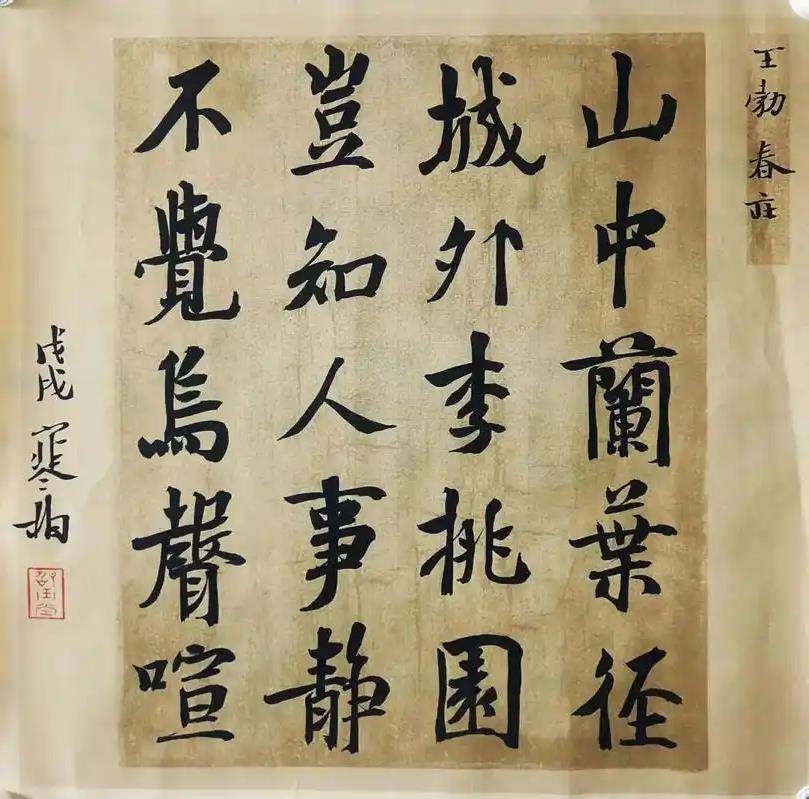 王勃 春庄
山中蘭葉徑
城外李桃園
豈知人事静
不覺鳥聲喧
戊戌寒